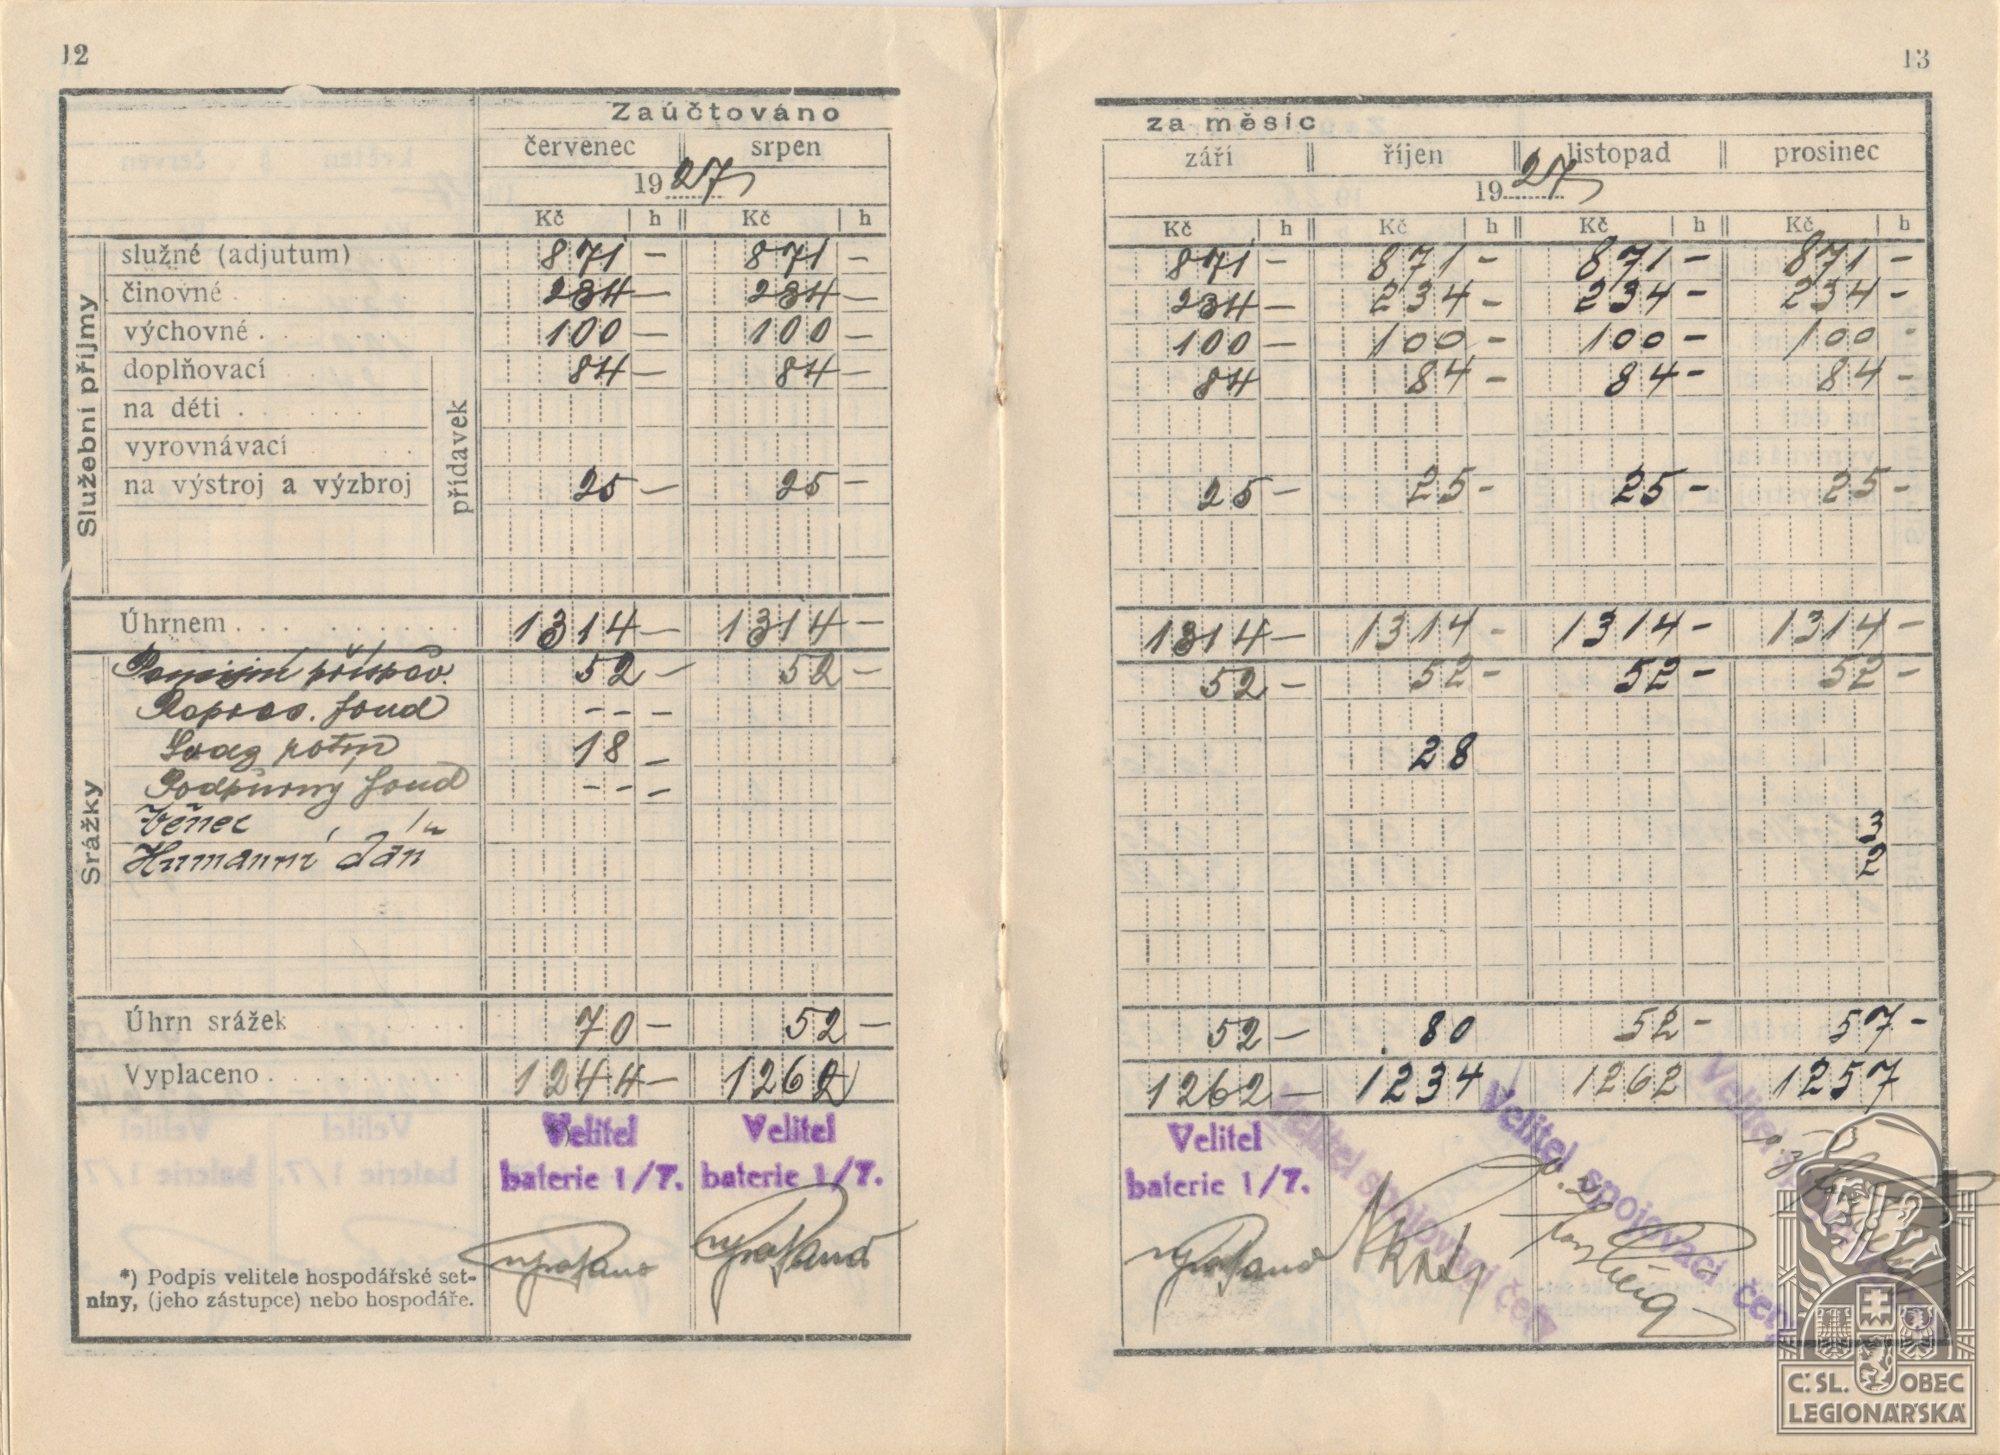 12
Zaúčtováno
červenec srpen
1927
Kč h Kč h
Služební příjmy
služné (adjutum) 871 — 871 —
činovné 234 — 234 —
výchovné 100 — 100 —
doplňovací 84 — 84 —
na děti
vyrovnávací
na výstroj a výzbroj 25 — 25 —
přídavek
Úhrnem 1314 — 1314 —
Srážky
Pensijní příspěv. 52 — 52 —
fond - - —
18 —
Podpůrný fond - - —
Věnec
Humanní dáň
Úhrn srážek 70 — 52 —
Vyplaceno 1244 — 1262
Velitel
baterie 1/7.
Velitel
baterie 1/7.
*) Podpis velitele hospodářské set-
niny, (jeho zástupce) nebo hospodáře.
13
za měsíc
září říjen listopad prosinec
1927
Kč h Kč h Kč h Kč h
871 — 871 — 871 — 871 —
234 — 234 — 234 — 234 —
100 — 100 — 100 — 100 -
84 84 — 84 — 84 —
25 — 25 — 25 — 25 —
1314 — 1314 — 1314 — 1314 —
52 — 52 — 52 — 52 —
28
3
2
52 — 80 52 — 57 —
1262 — 1234 1262 1257
Velitel
baterie 1/7.
Velitel spojovací čety
Velitel spojovací čety
Velitel
Č. SL. OBEC
LEGIONÁŘSKÁ